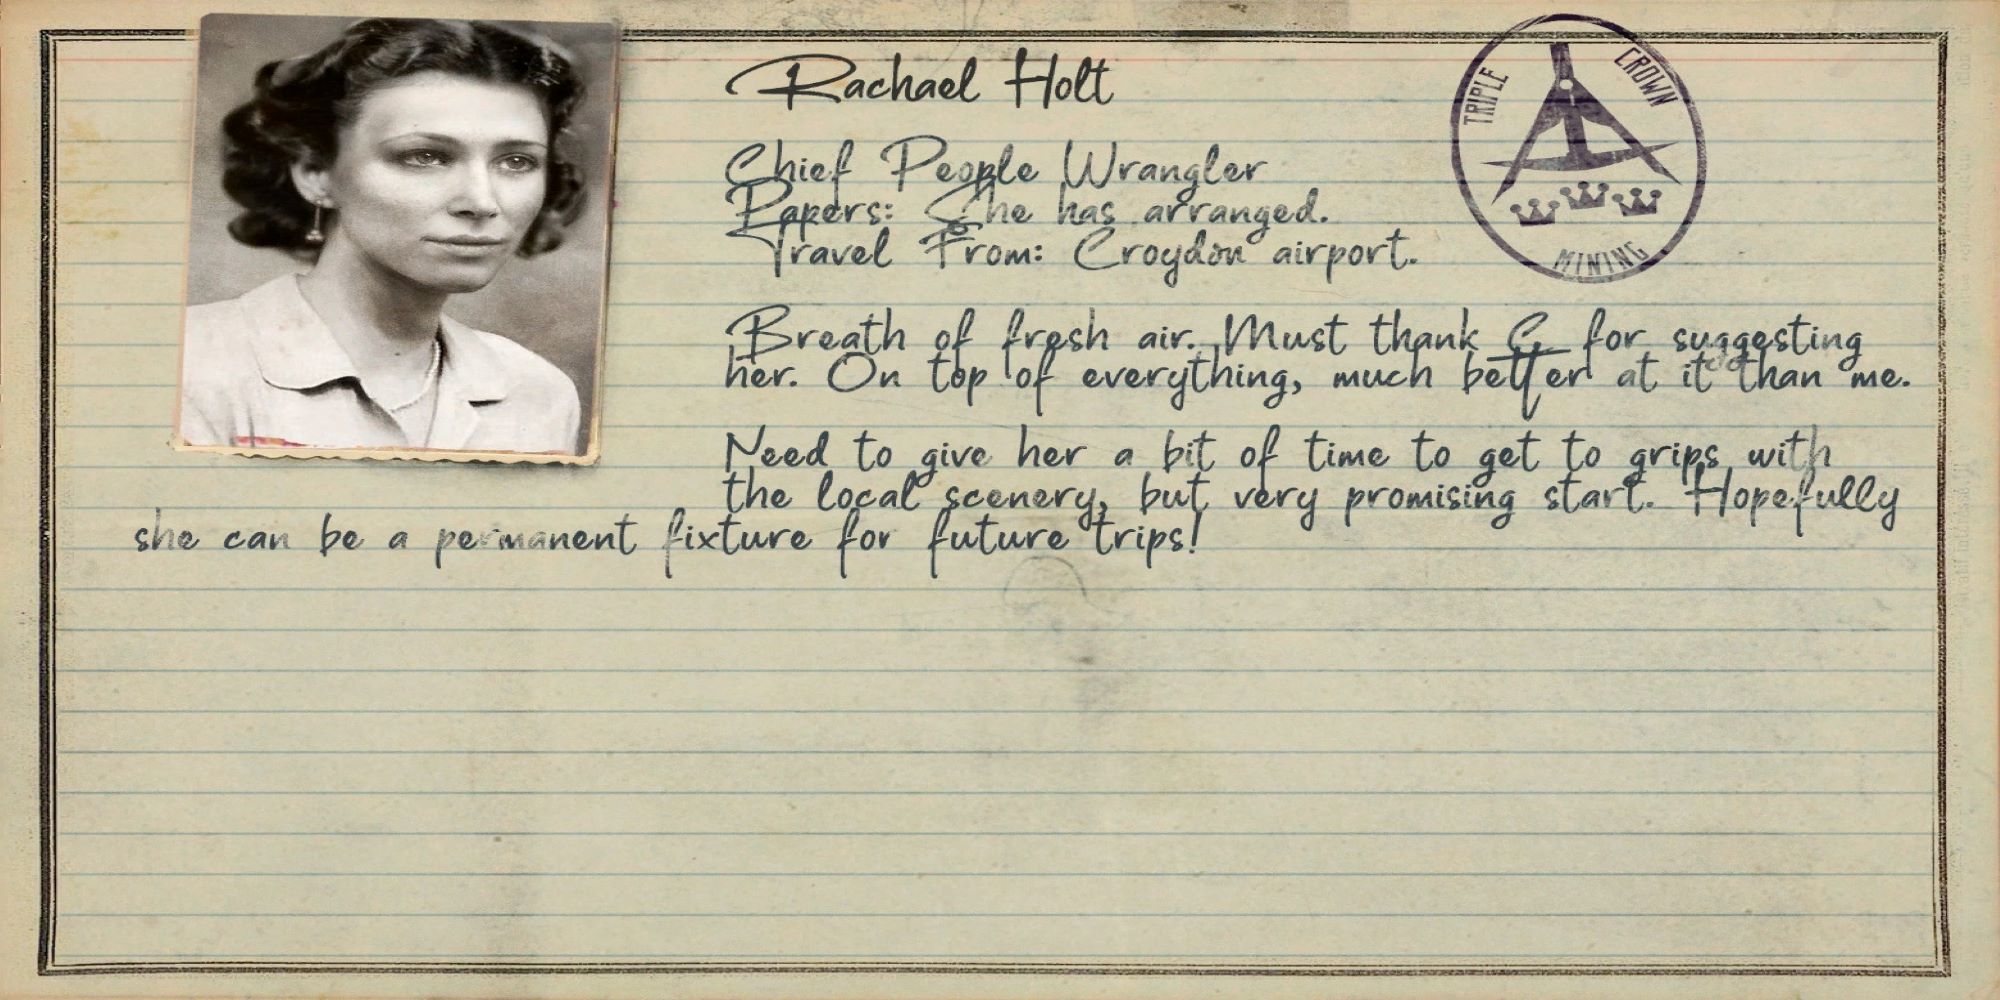 Rachael Holt
TRIPLE CROWN MINING
Chief People Wrangler
Papers: She has arranged.
Travel From: Croydon airport.
Breath of fresh air. Must thank C. for suggesting
her. On top of everything, much better at it than me.
Need to give her a bit of time to get to grips with
the local scenery, but very promising start. Hopefully
she can be a permanent fixture for future trips!